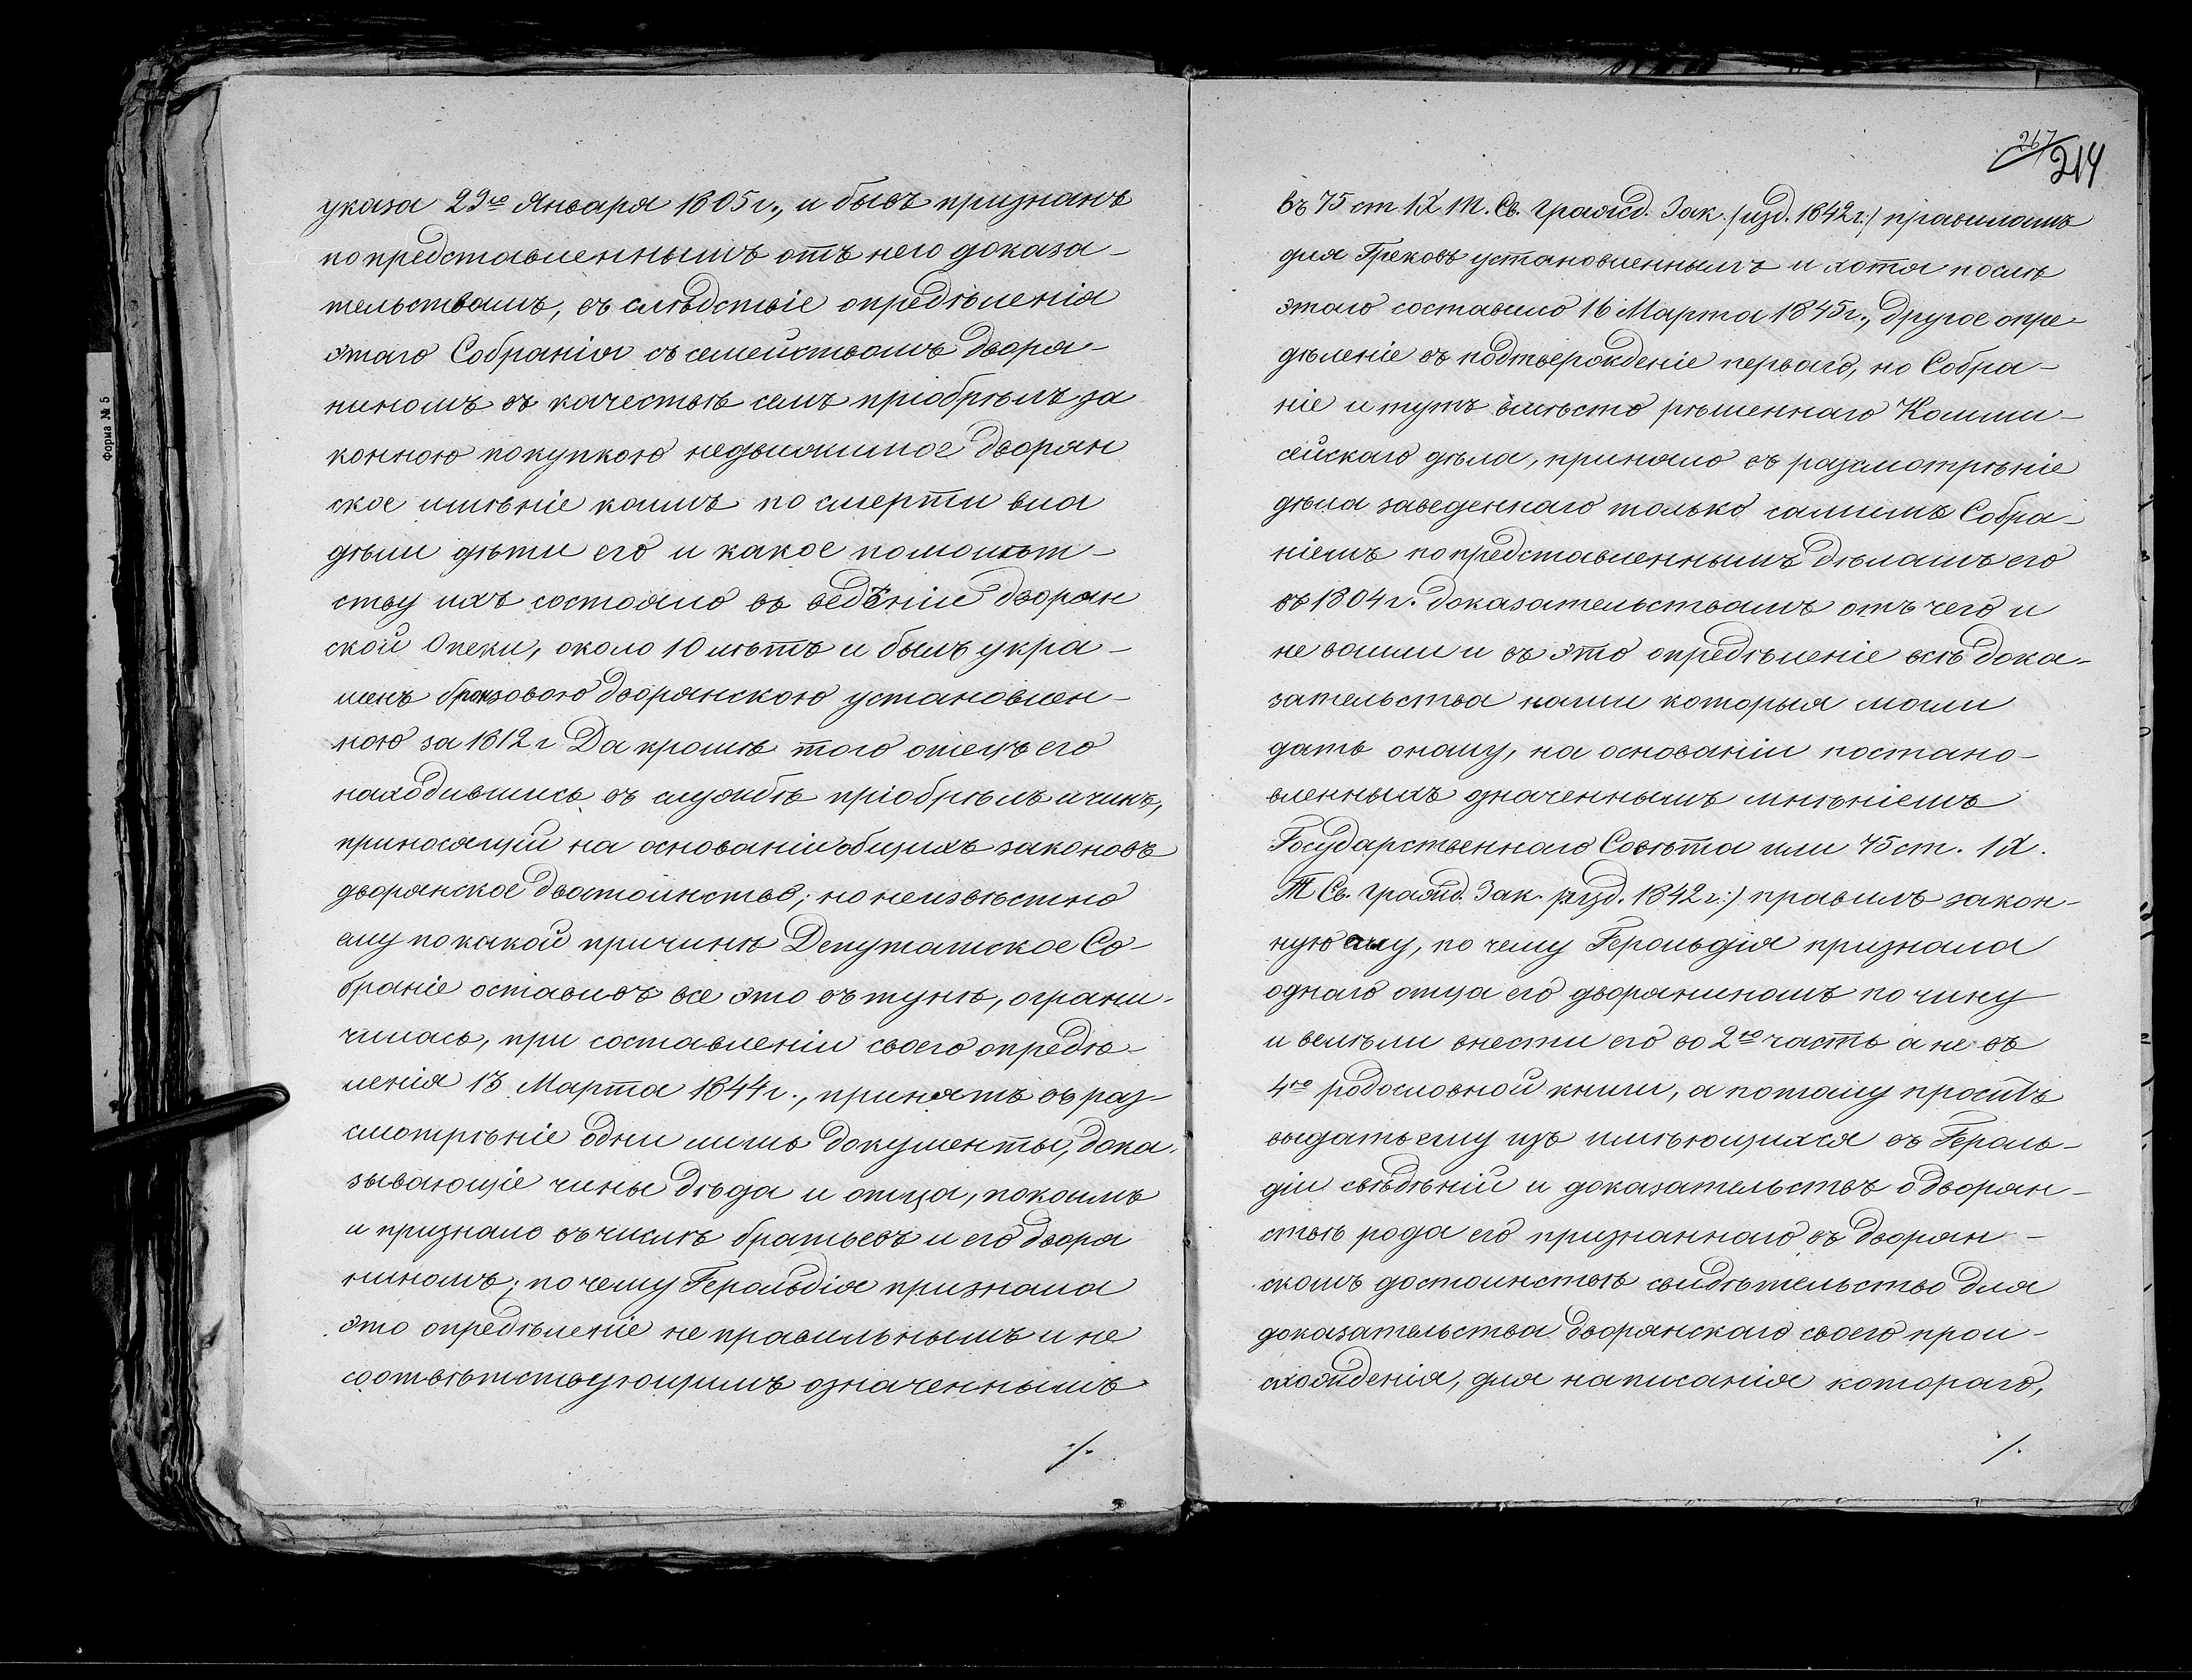 указа 29го Января 1805 г., и бывъ признанъ
по представленнымъ отъ него доказа-
тельствамъ, въ слѣдствіе опредѣленія
этаго Собранія съ семействомъ дворя-
ниномъ въ качествѣ семъ пріобрѣлъ за
конною покупкою недвижимое дворян
ское имѣніе коимъ по смерти вла
дѣли дѣти его и какое по малолѣт-
ству ихъ состояло въ веденіи дворян
ской Опеки, около 10 лѣтъ и былъ укра-
шенъ бронзовою дворянскою установлен-
ною за 1812 г Да кромѣ того отецъ его
находившись въ службѣ пріобрѣлъ и чинъ,
приносящій на основаніи общихъ законовъ
дворянское двостоинство; но неизвѣстно
ему по какой причинѣ Депутатское Со-
браніе оставивъ все это въ тунѣ, ограни-
чилась, при составленіи своего опредѣ-
ленія 13 Марта 1844 г., принятъ въ раз-
смотрѣніе одни лишь документы, дока-
зывающіе чины дѣда и отца, по коимъ
и признало въ числѣ братьевъ и его дворя
ниномъ; по чему Герольдія признала
это опредѣленіе не правильнымъ и не
соотвѣтствующимъ означеннымъ
./.
267
214
въ 75 ст. IX т. Св. Гражд. Зак. (изд. 1842 г:) правиламъ
для Грековъ установленнымъ и хотя послѣ
этаго составило 16 Марта 1845 г., другое опре-
дѣленіе въ подтверожденіе перваго, но Собра-
ніе и тутъ вмѣсто рѣшеннаго Комми-
сейскаго дѣла, приняло въ разсмотрѣніе
дѣла заведеннаго только самимъ Собра-
ніемъ по представленнымъ дѣламъ его
въ 1804 г. доказательствамъ отъ чего и
не вошли и въ это опредѣленіе всѣ дока-
зательства наши которыя могли
дать оному, на основаніи постано-
вленныхъ означеннымъ мнѣніемъ
Государственнаго Совѣта или 75 ст. IX.
Т Св. Гражд. Зак. (изд. 1842 г:) правилъ закон-
ную силу, по чему Герольдія признала
однаго отца его дворяниномъ по чину
и велѣли внести его во 2ю часть а не въ
4ю родословной книги, а потому проситъ
выдать ему изъ имѣющихся въ Героль-
діи свѣдѣній и доказательствъ о дворян-
ствѣ рода его признаннаго въ дворян-
скомъ достоинствѣ свидѣтельство для
доказательства дворянскаго своего прои-
схожденія, для написанія котораго,
/.